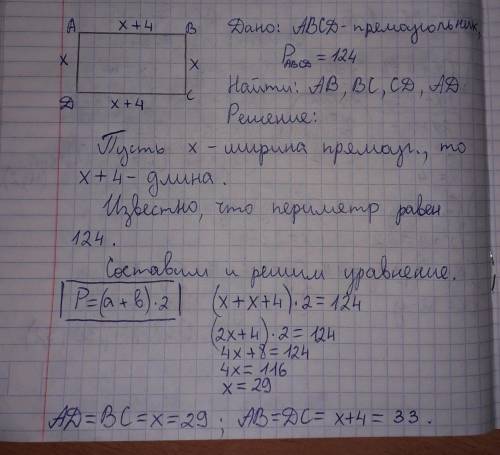 A x+4 B
x x
D x+4 C
Дано: ABCD - прямоугольник,
P_ABCD = 124
Найти: AB, BC, CD, AD
Решение:
Пусть x - ширина прямоуг., то
x+4 - длина.
Известно, что периметр равен
124.
Составим и решим уравнение.
P=(a+b)·2 (x+x+4)·2=124
(2x+4)·2=124
4x+8=124
4x=116
x=29
AD=BC=x=29; AB=DC=x+4=33.